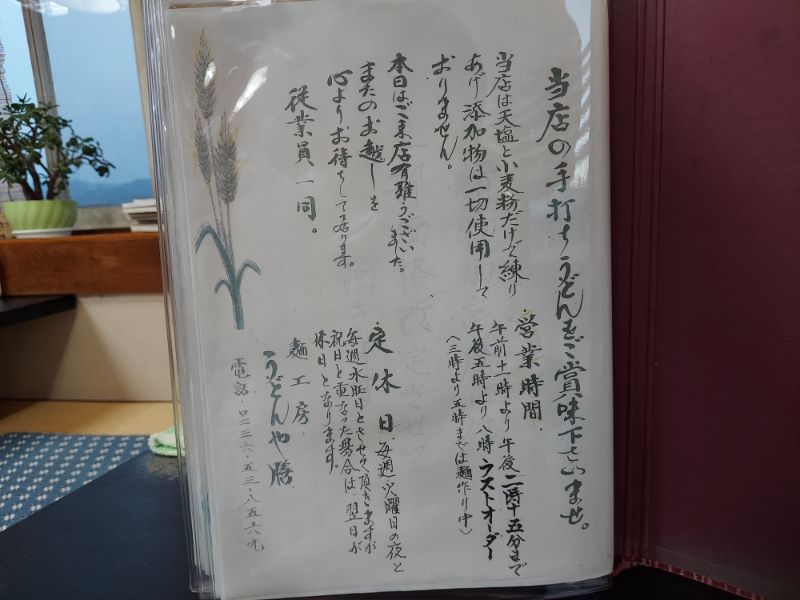 当店の手打ちうどんをご賞味下さいませ。
当店は天塩と小麦粉だけで練り
あげ添加物は一切使用して
おりません。
本日はご来店有難うござい
ました。
またのお越しを
心よりお待ちして居ります。
従業員一同。
営業時間
午前十一時より午後二時十五分まで
午後五時より八時ラストオーダー
(三時より五時までは麺作り中)
定休日毎週火曜日の夜と
毎週水曜日とさせて頂きますが
祝日と重なった場合は、翌日が
休日となります。
麺工房
うどんや膳
電話・〇二三六・五三・八五六九